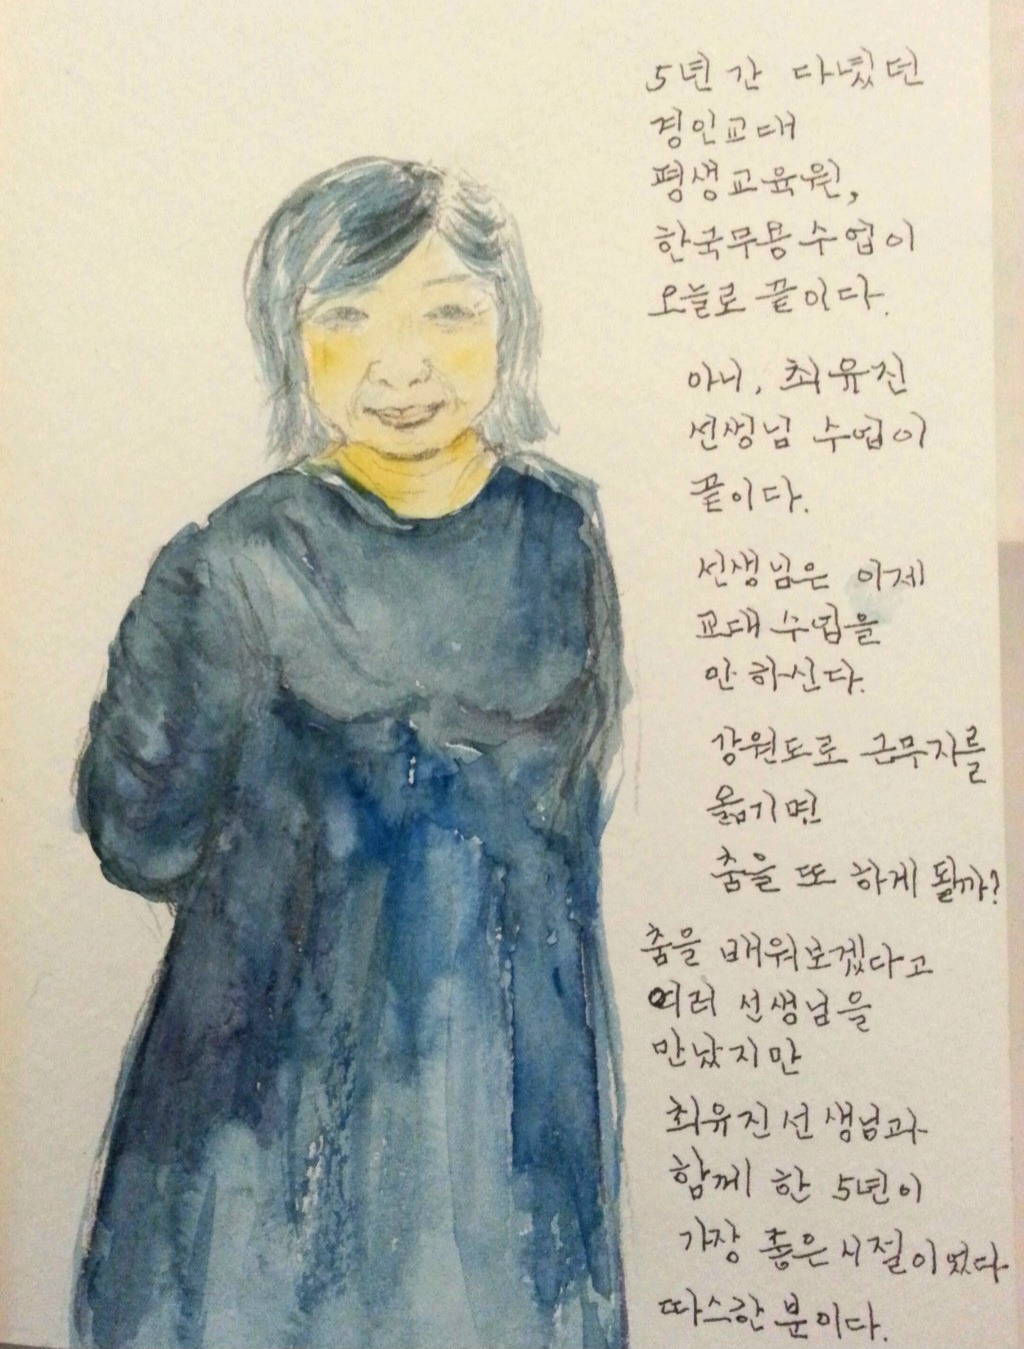 5년간 다녔던
경인교대
평생교육원,
한국무용수업이
오늘로 끝이다.
아니, 최유진
선생님 수업이
끝이다.
선생님은 이제
교대수업을
안하신다.
강원도로 근무지를
옮기면
춤을 또 하게 될까?
춤을 배워보겠다고
여러 선생님을
만났지만
최유진선생님과
함께 한 5년이
가장 좋은 시절이었다
따스한 분이다.